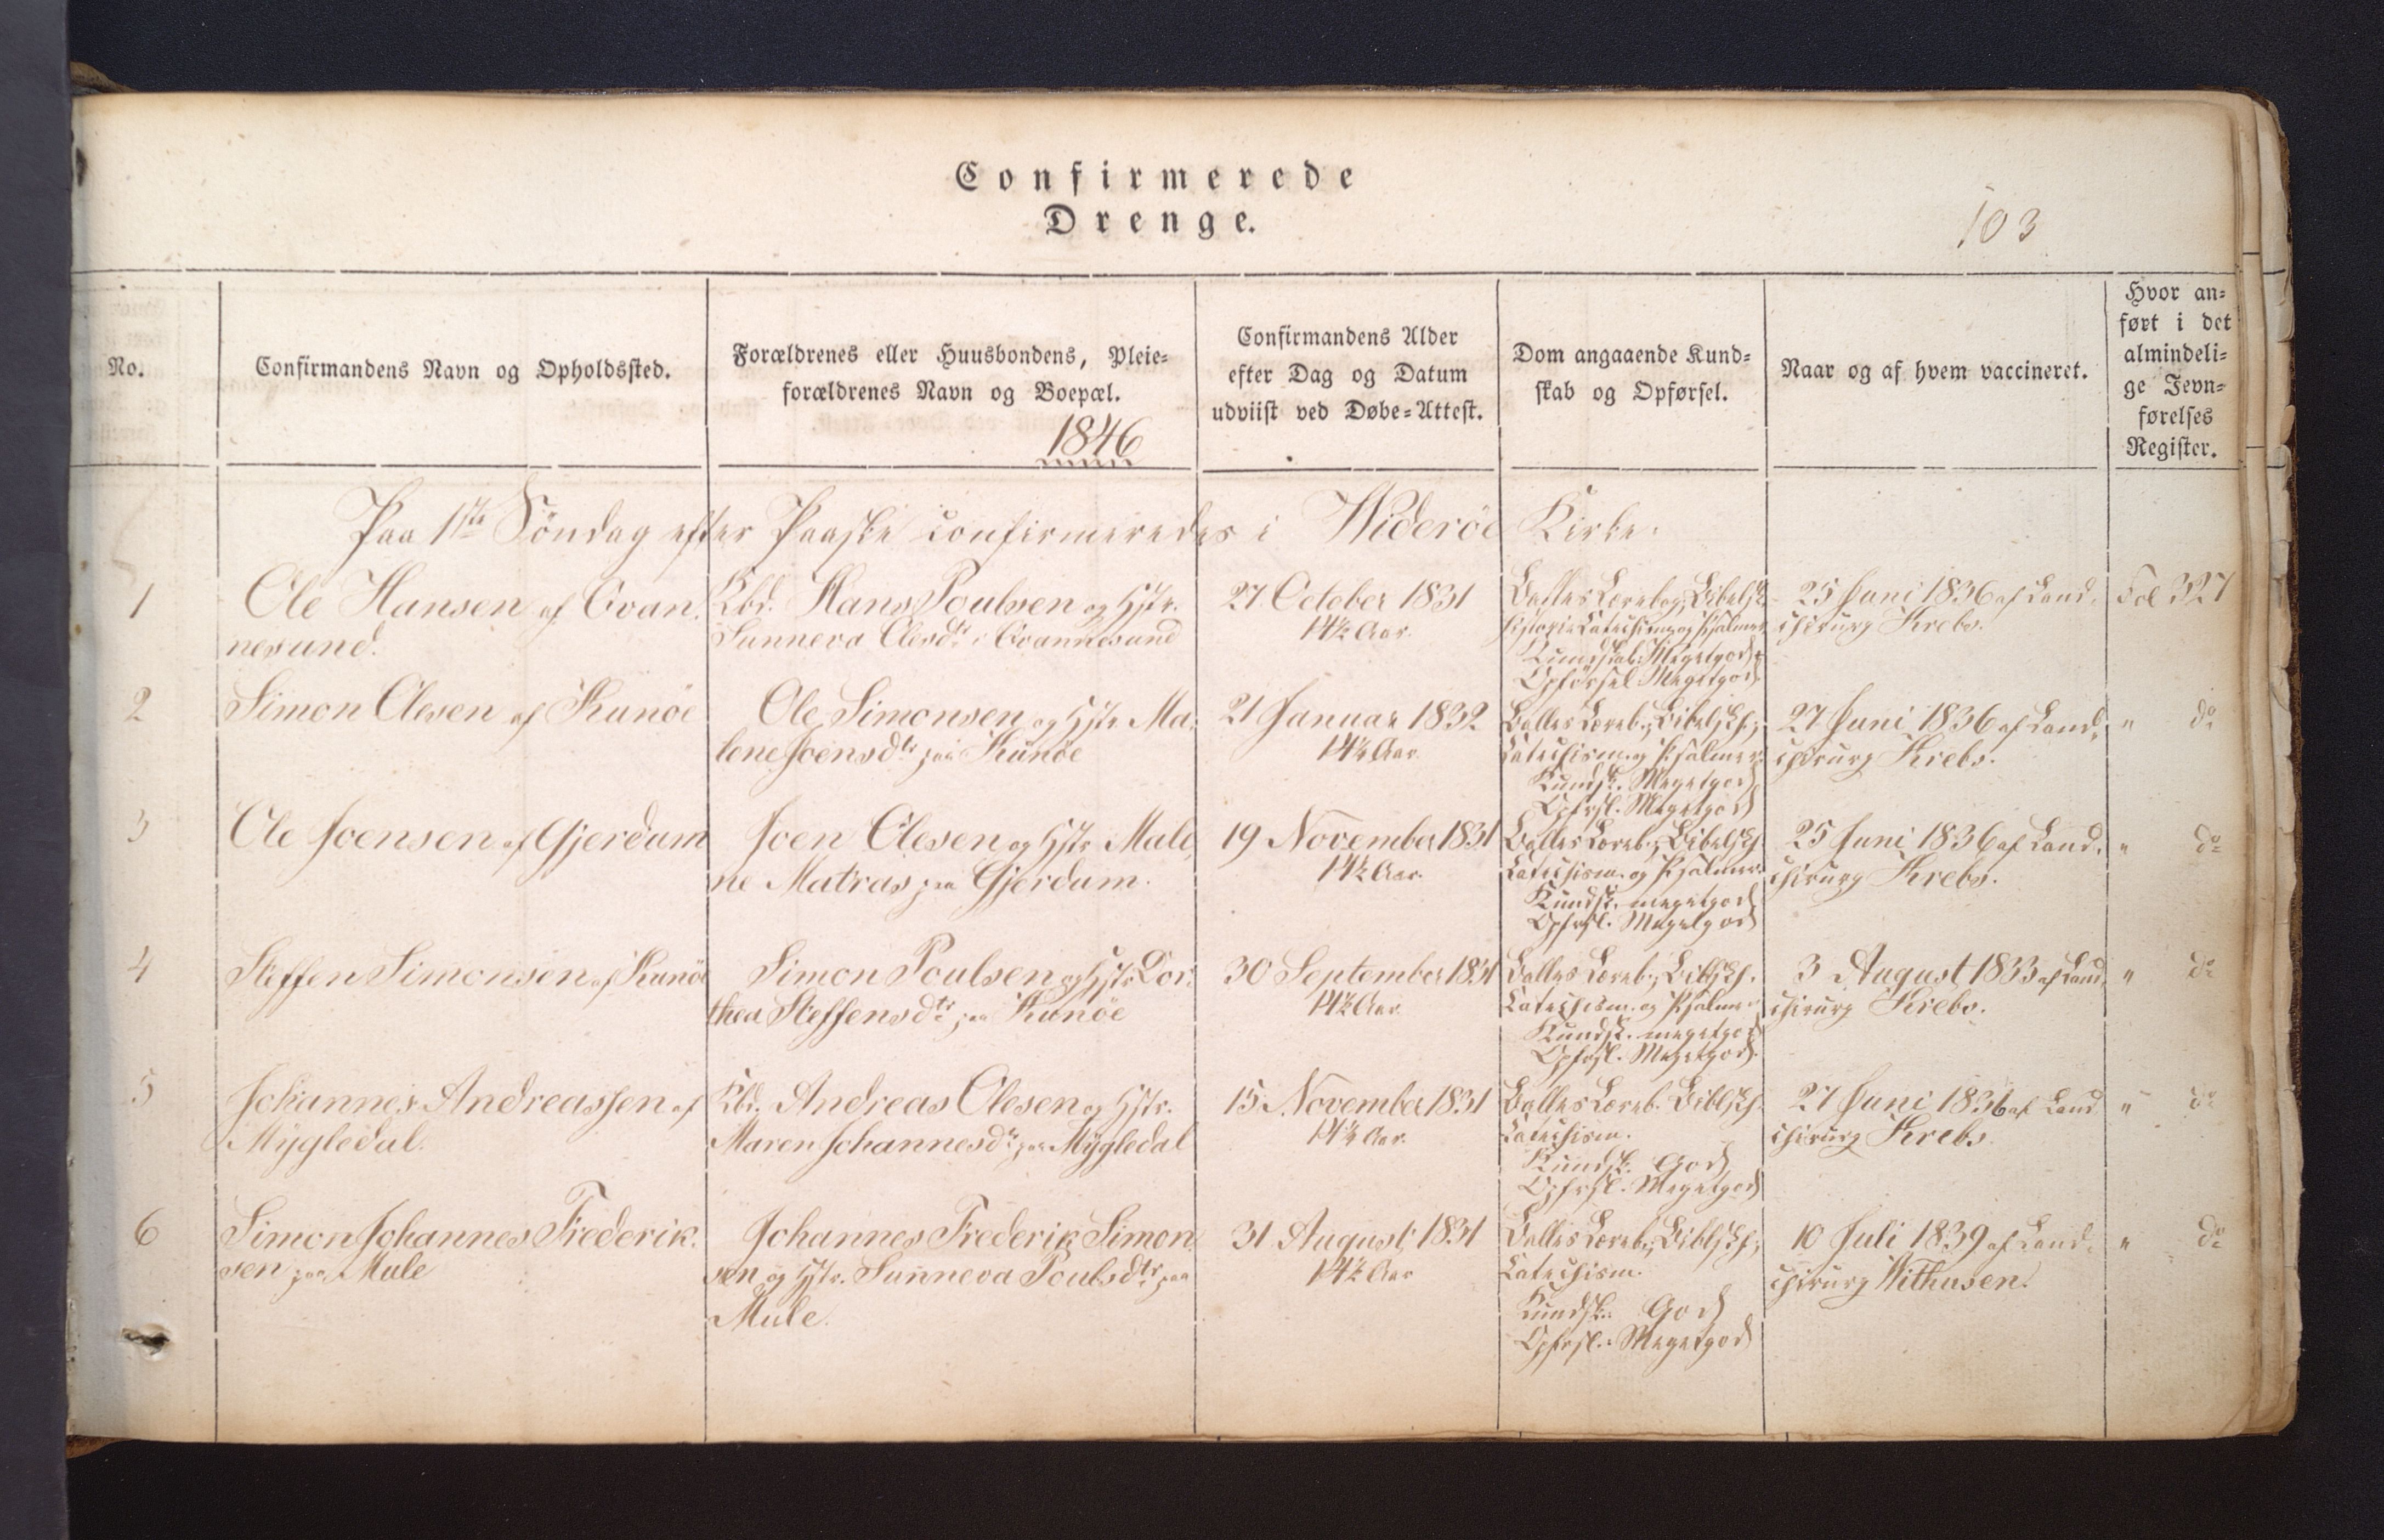 Confirmerede
Drenge.
103
No.
Confirmandens Navn og Opholdssted.
Forældrenes eller Huusbondens, Pleie=
forældrenes Navn og Boepæl.
1846
Confirmandens Alder
efter Dag og Datum
udviist ved Døbe=Attest.
Dom angaaende Kund=
skab og Opførsel.
Naar og af hvem vaccineret.
Hvor an=
ført i det
almindeli=
ge Jevn=
førelses
Register.
Paa 1ste Söndag efter Paaske confirmeredes i Wideröe Kirke.
1
Ole Hansen af Qvan,
nesund.
Kbd. Hans Poulsen og Hstr.
Sunneva Olesdtr i Qvannesund
27 October 1831
14½ Aar.
Balles Lærebog, Bibelsk
historie Catechism. og Psalmer
Kundskab: Megetgod
Opförsel Megetgod
25 Juni 1836 af Land,
chirurg Krebs.
Fol 327
2
Simon Olesen af Kunöe
Ole Simonsen og Hstr Ma,
lene Joensdtr paa Kunöe
21 Januar 1832
14¼ Aar.
Balles Læreb., Bibelsk h.,
Catechism. og Psalmer.
Kundsk. Megetgod
Opfrsl. Megetgod
27 Juni 1836 af Land,
chirurg Krebs.
" do
3
Ole Joensen af Gjerdum
Joen Olesen og Hstr Male,
ne Matras paa Gjerdum.
19 November 1831
14½ Aar.
Balles Læreb., Bibelsk h.
Catechism. og Psalmer.
Kundsk. megetgod
Opfrsl. Megetgod
25 Juni 1836 af Land,
chirurg Krebs.
" do
4
Steffen Simonsen af Kunöe
Simon Poulsen og Hstr Dor,
thea Steffensdtr paa Kunöe
30 September 1831
14½ Aar.
Balles Læreb., Biblsk h.
Catechism. og Psalmer
Kundsk. megetgod
Opfrsl. Megetgod.
3 August 1833 af Land,
chirurg Krebs.
" do
5
Johannes Andreassen af
Mygledal.
Kbd. Andreas Olesen og Hstr.
Maren Johannesdtr paa Mygledal
15 November 1831
14½ Aar.
Balles Læreb. Biblsk h.
Catechism.
Kundsk. God
Opfrsl. Megetgod
27 Juni 1836 af Land
chirurg Krebs.
" do
6
Simon Johannes Frederik,
sen paa Mule
Johannes Frederik Simon,
sen og Hstr. Sunneva Poulsdtr paa
Mule.
31 August 1831
14½ Aar
Balles Læreb., Biblsk h.,
Catechism.
Kundsk.: God
Opfrsl.: Megetgod
10 Juli 1839 af Land,
chirurg Withusen.
" do